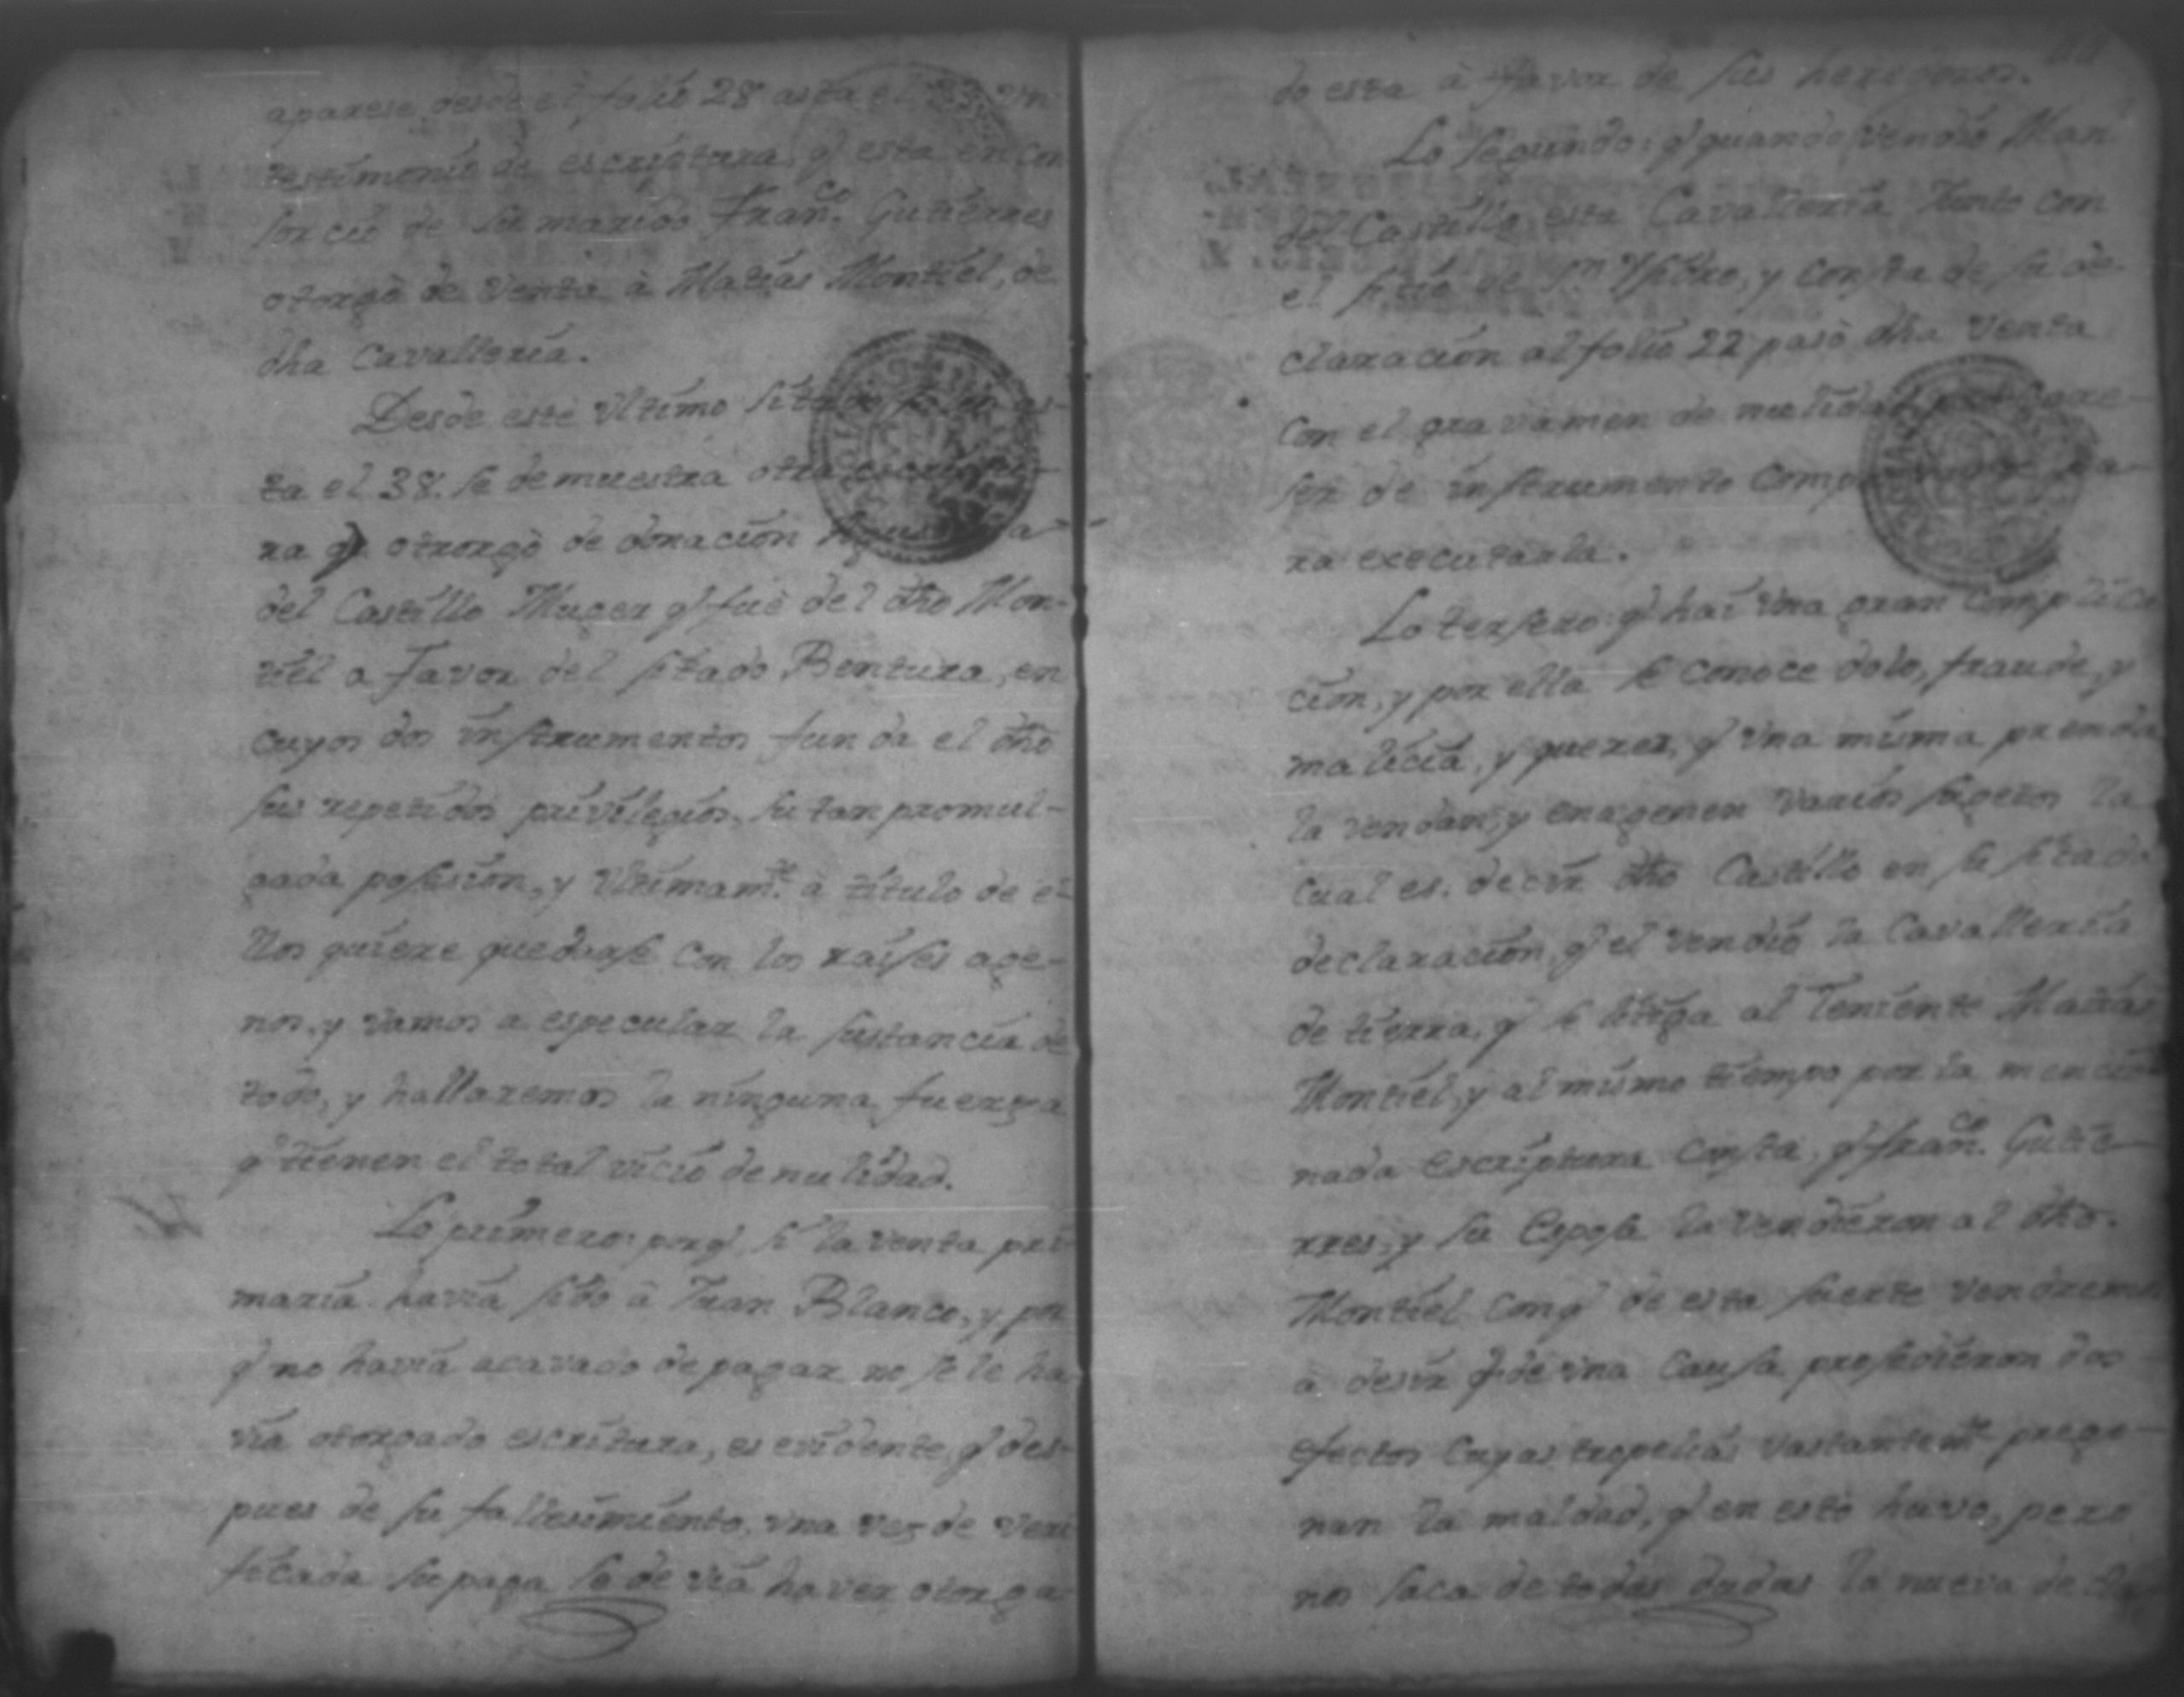 aparese desde el folio 28 asta el 33 vn
testimonio de escriptura, q̃ esta en con
sorcio de su marido Fran.co Gutierres
otorgò de Venta à Matias Montiel, de
dha Cavalleria.
Desde este vltimo sitado
ta el 38. se demuestra otra
ra q̃ otrorgò de donacion
del Castillo Muger q̃ fuè del dho Mon-
tiel a favor del sitado Bentura, en
cuyos dos instrumentos funda el dho
sus repetidos privilegios, su tan promul-
gada posesion, y vltimam.te à titulo de e-
llos quiere quedarse con los raises age-
nos, y vamos a especular la sustancia de
todo, y hallaremos la ninguna fuerza
q̃ tienen el total vicio de nulidad.
Lo primero: porq̃ si la venta pri
maria havia sido à Juan Blanco, y por
q̃ no havia acavado de pagar no se le ha
via otorgado escritura, es evidente, q̃ des-
pues de su fallesimiento, vna vez de veri
ficada su paga se devia haver otorga
do esta à favor de sus herederos.
Lo segundo: q̃ quando vendiò Man
del Castillo esta Cavalleria Junto con
el sitio de S.n Ysidro, y consta de su de
claracion al folio 22 pasò dha Venta
con el gravamen de nulidad por care-
ser de instrumento pa
ra executarla.
Lo tersero: q̃ hai vna gran complica
cion, y por ella se conoce dolo, fraude, y
malicia, y querer, q̃ vna misma prenda
la vendan, y enagenen varios sugetos la
cual es. decir dho Castillo en su sitada
declaracion, q̃ el vendiò la Cavalleria
de tierra, q̃ se litiga al Teniente Matias
Montiel, y al mismo tiempo por la mencio
nada escriptura consta, q̃ Fran.co Gutie
rres, y su Esposa la vendieron al dho.
Montiel conq̃ de esta suerte vendremos
a desir q̃ de vna causa prosedieron dos
efectos cuyas tropelias vastantem.te prego-
nan la maldad, q̃ en esto huvo, pero
nos saca de todas dudas la nueva decla